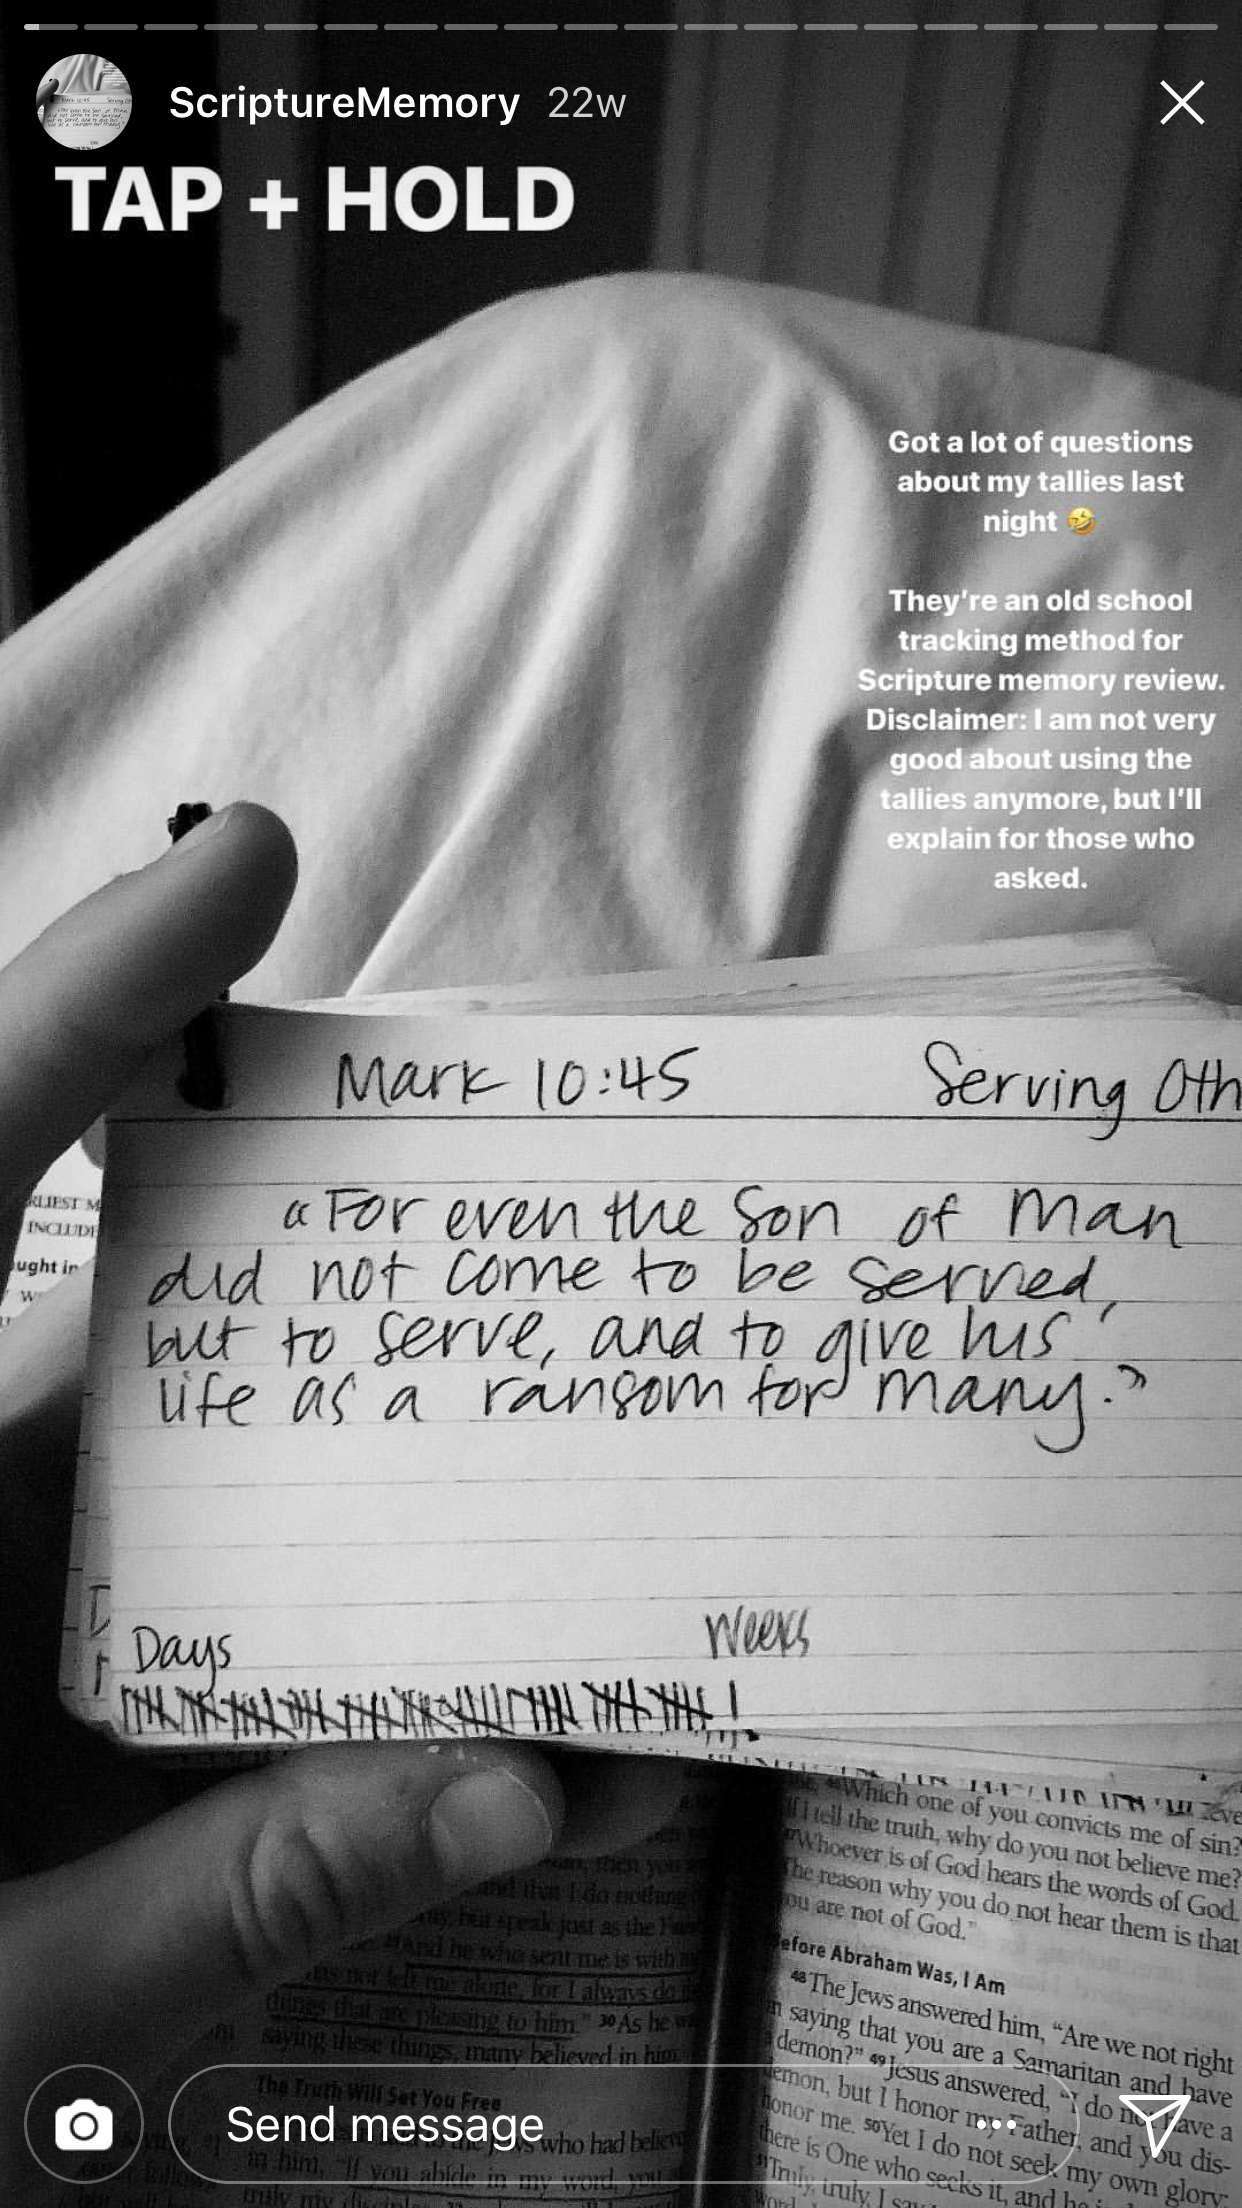 ScriptureMemory 22w
TAP + HOLD
Got a lot of questions
about my tallies last
night 🤣
They're an old school
tracking method for
Scripture memory review.
Disclaimer: I am not very
good about using the
tallies anymore, but I'll
explain for those who
asked.
Mark 10:45 Serving Oth
"For even the Son of Man
did not come to be served,
but to serve, and to give his
life as a ransom for many."
Days Weeks
RLIEST M
INCLUDE
ught in
Which one of you convicts me of sin?
If I tell the truth, why do you not believe me?
Whoever is of God hears the words of God.
The reason why you do not hear them is that
you are not of God."
efore Abraham Was, I Am
48 The Jews answered him, "Are we not right
n saying that you are a Samaritan and have
demon?" 49 Jesus answered, "I do not have a
demon, but I honor my Father, and you dis-
honor me. 50 Yet I do not seek my own glory;
there is One who seeks it, and he
"Truly, truly, I say
then you
and that I do nothing
but speak just as the
And he who sent me is with
has not left me alone, for I always do
things that are pleasing to him." 30 As he
saying these things, many believed in him.
The Truth Will Set You Free
who had
in him, "If you abide in my word, you
truly my
Send message